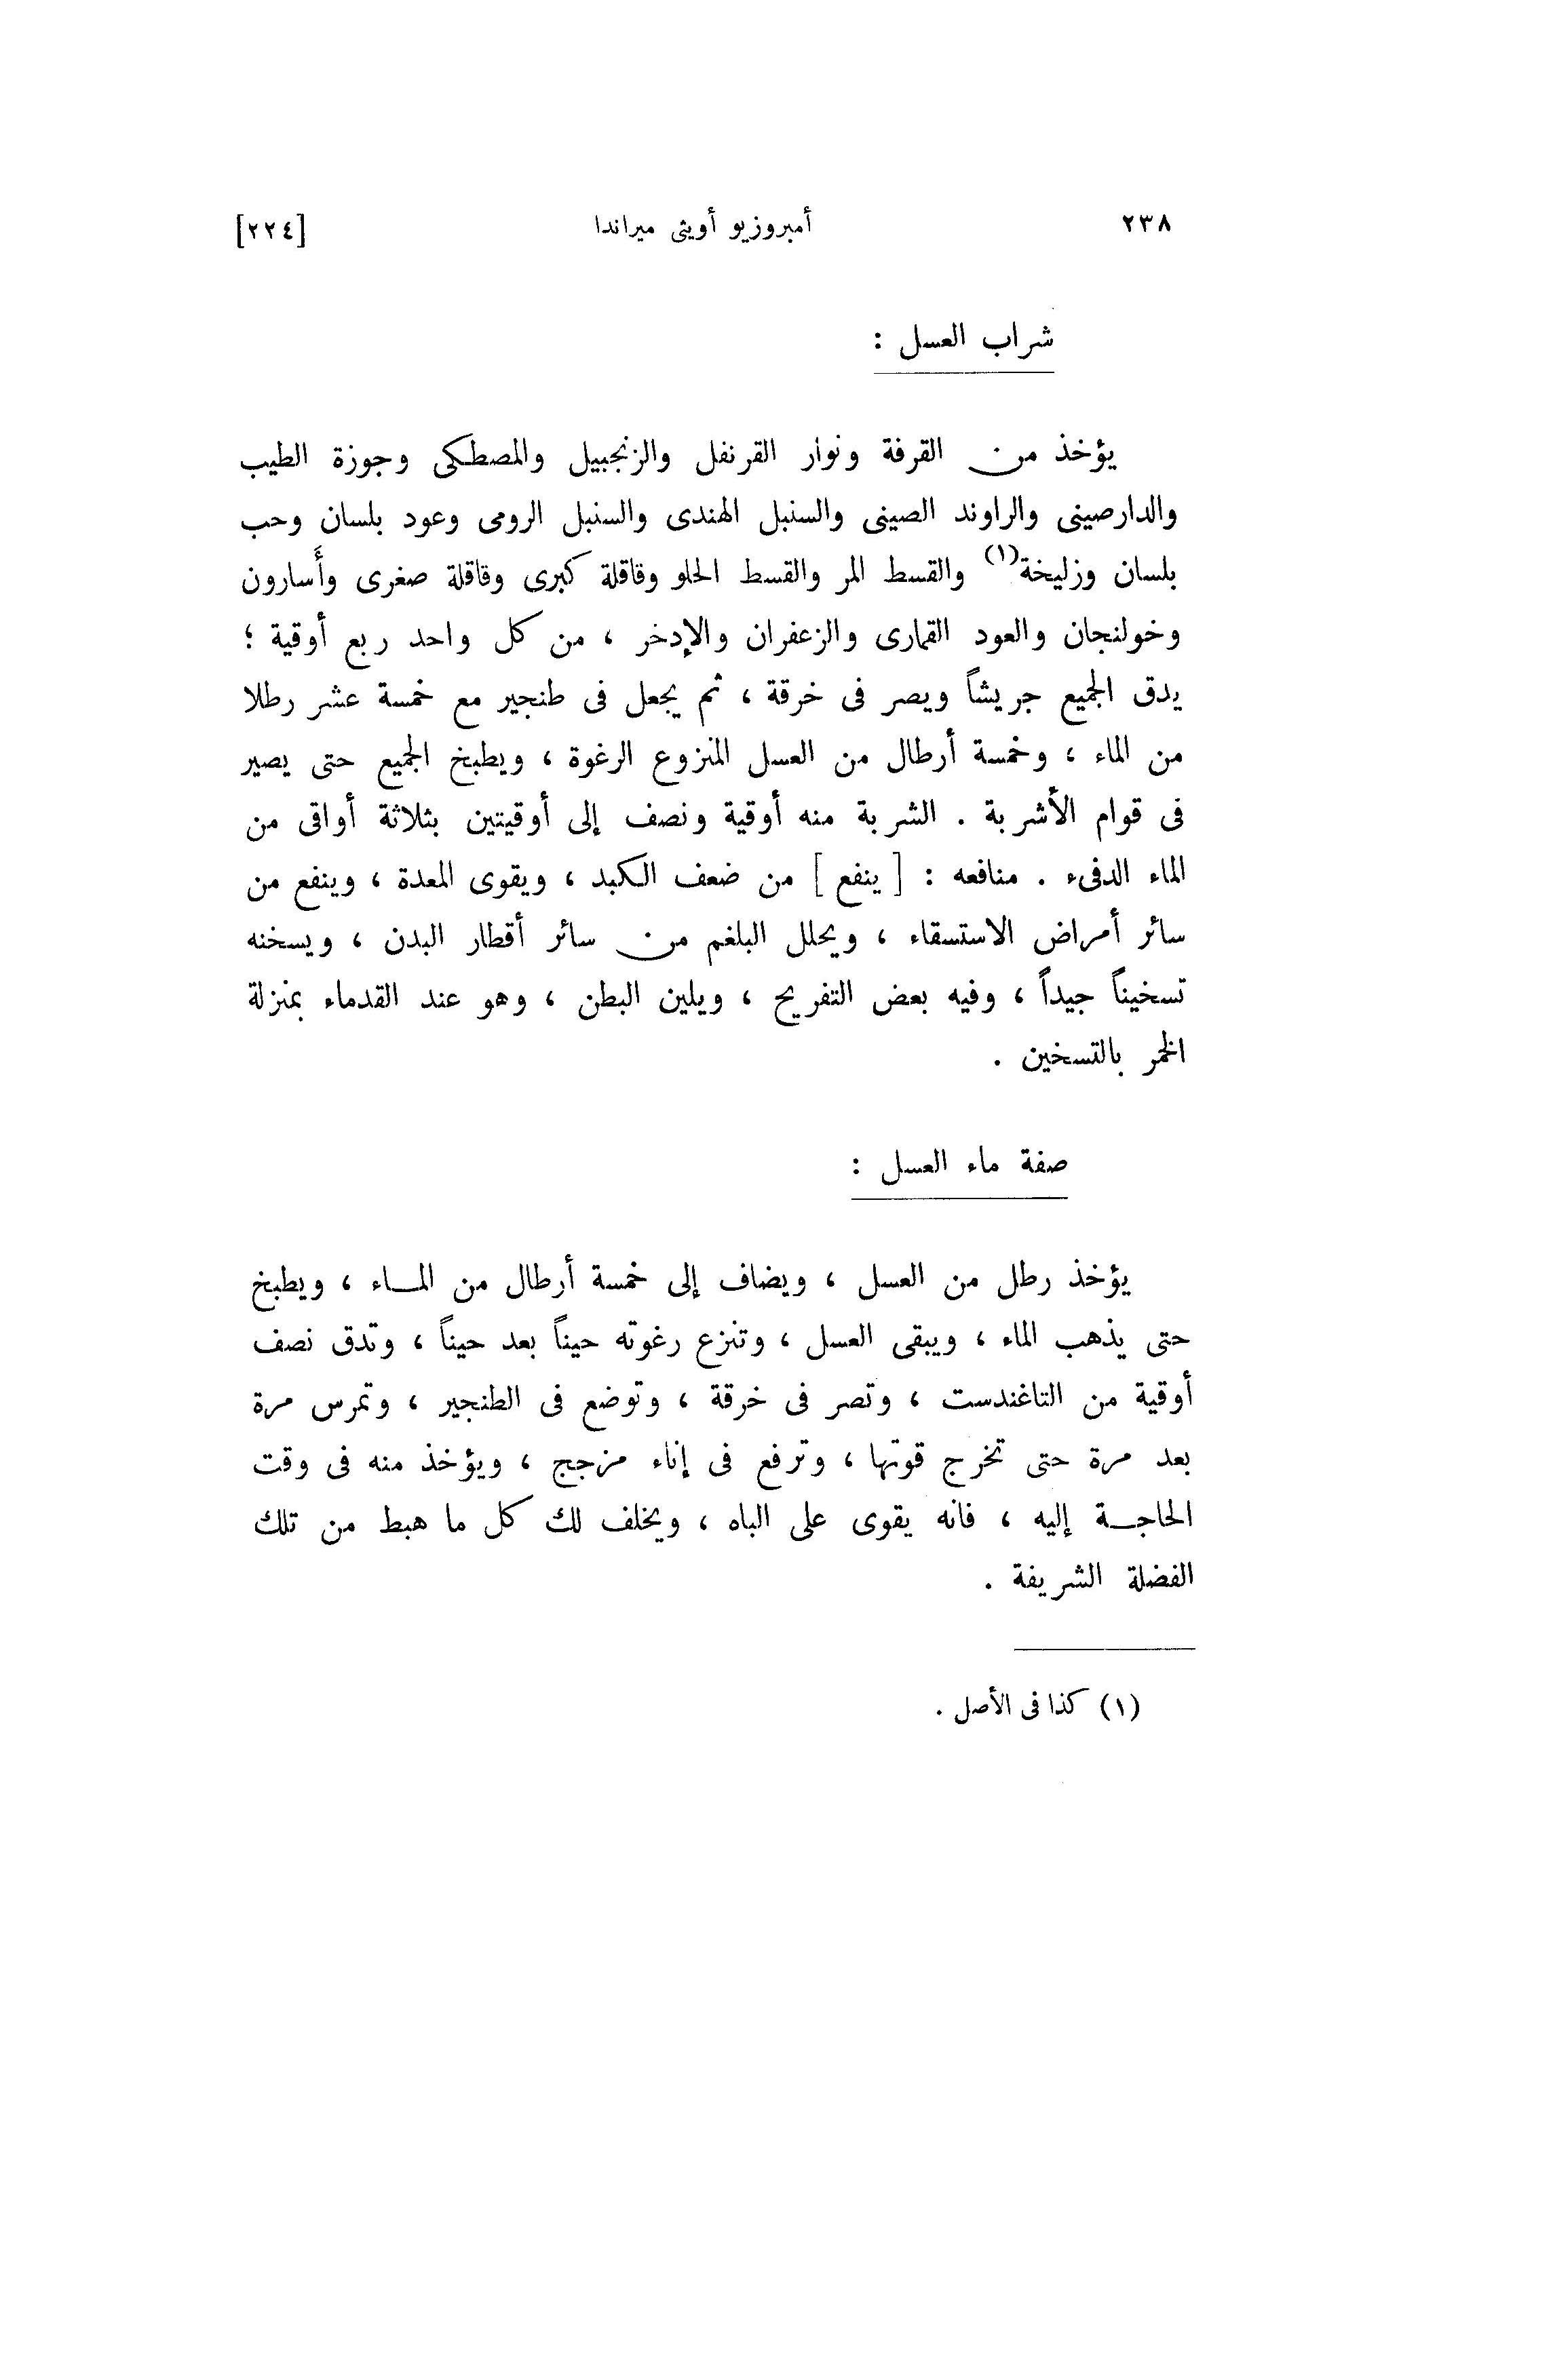 ٢٣٨ أمبروزيو أويثى ميراندا [٢٢٤]
شراب العسل :
يؤخذ من القرفة ونوار القرنفل والزنجبيل والمصطكى وجوزة الطيب
والدارصينى والراوند الصينى والسنبل الهندى والسنبل الرومى وعود بلسان وحب
بلسان وزليخة(١) والقسط المر والقسط الحلو وقاقلة كبرى وقاقلة صغرى وأَسارون
وخولنجان والعود القمارى والزعفران والإدخر ، من كل واحد ربع أوقية ؛
يدق الجميع جريشاً ويصر فى خرقة ، ثم يجعل فى طنجير مع خمسة عشر رطلا
من الماء ، وخمسة أرطال من العسل المنزوع الرغوة ، ويطبخ الجميع حتى يصير
فى قوام الأشربة . الشربة منه أوقية ونصف إلى أوقيتين بثلاثة أواقى من
الماء الدفىء . منافعه : [ ينفع ] من ضعف الكبد ، ويقوى المعدة ، وينفع من
سائر أمراض الاستسقاء ، ويحلل البلغم من سائر أقطار البدن ، ويسخنه
تسخيناً جيداً ، وفيه بعض التفريح ، ويلين البطن ، وهو عند القدماء بمنزلة
الخمر بالتسخين .
صفة ماء العسل :
يؤخذ رطل من العسل ، ويضاف إلى خمسة أرطال من المـاء ، ويطبخ
حتى يذهب الماء ، ويبقى العسل ، وتنزع رغوته حيناً بعد حيناً ، وتدق نصف
أوقية من التاغندست ، وتصر فى خرقة ، وتوضع فى الطنجير ، وتمرس مرة
بعد مرة حتى تخرج قوتها ، وترفع فى إناء مزجج ، ويؤخذ منه فى وقت
الحاجـة إليه ، فانه يقوى على الباه ، ويخلف لك كل ما هبط من تلك
الفضلة الشريفة .
(١) كذا فى الأصل .